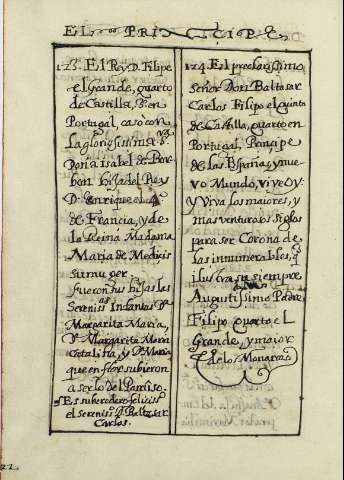 EL PRINCIPE
123. El Rey D. Filipe
el Grande, quarto
de Castilla, 3º en
Portugal, casó con
la gloriosissima Sª
Doña Isabel de Bor
bon hija del Rey
D. Enrique el 4º
de Francia, y de
la Reina Madama
Maria de Medicis
su muger.
fueron sus hijas las
Sereniss as Infantas Dª
Margarita Maria,
Dª Margarita Maria
Catalina, y Dª Maria
que en flor subieron
a serlo del Paraiso.
Es su heredero felicissº
el serenissº D. Baltasar
Carlos.
124. El preclarissimo
señor Don Baltasar
Carlos Filipo el quinto
de Castilla, quarto en
Portugal, Principe
de las Españas, y nue
vo Mundo, vive oy:
y viva los maiores, y
mas venturosos siglos
para ser Corona de
las innumerables, q
ilustra su siempre
Augustissimo Padre
Filipo quarto el
Grande, y maior
de los Monarcas
22